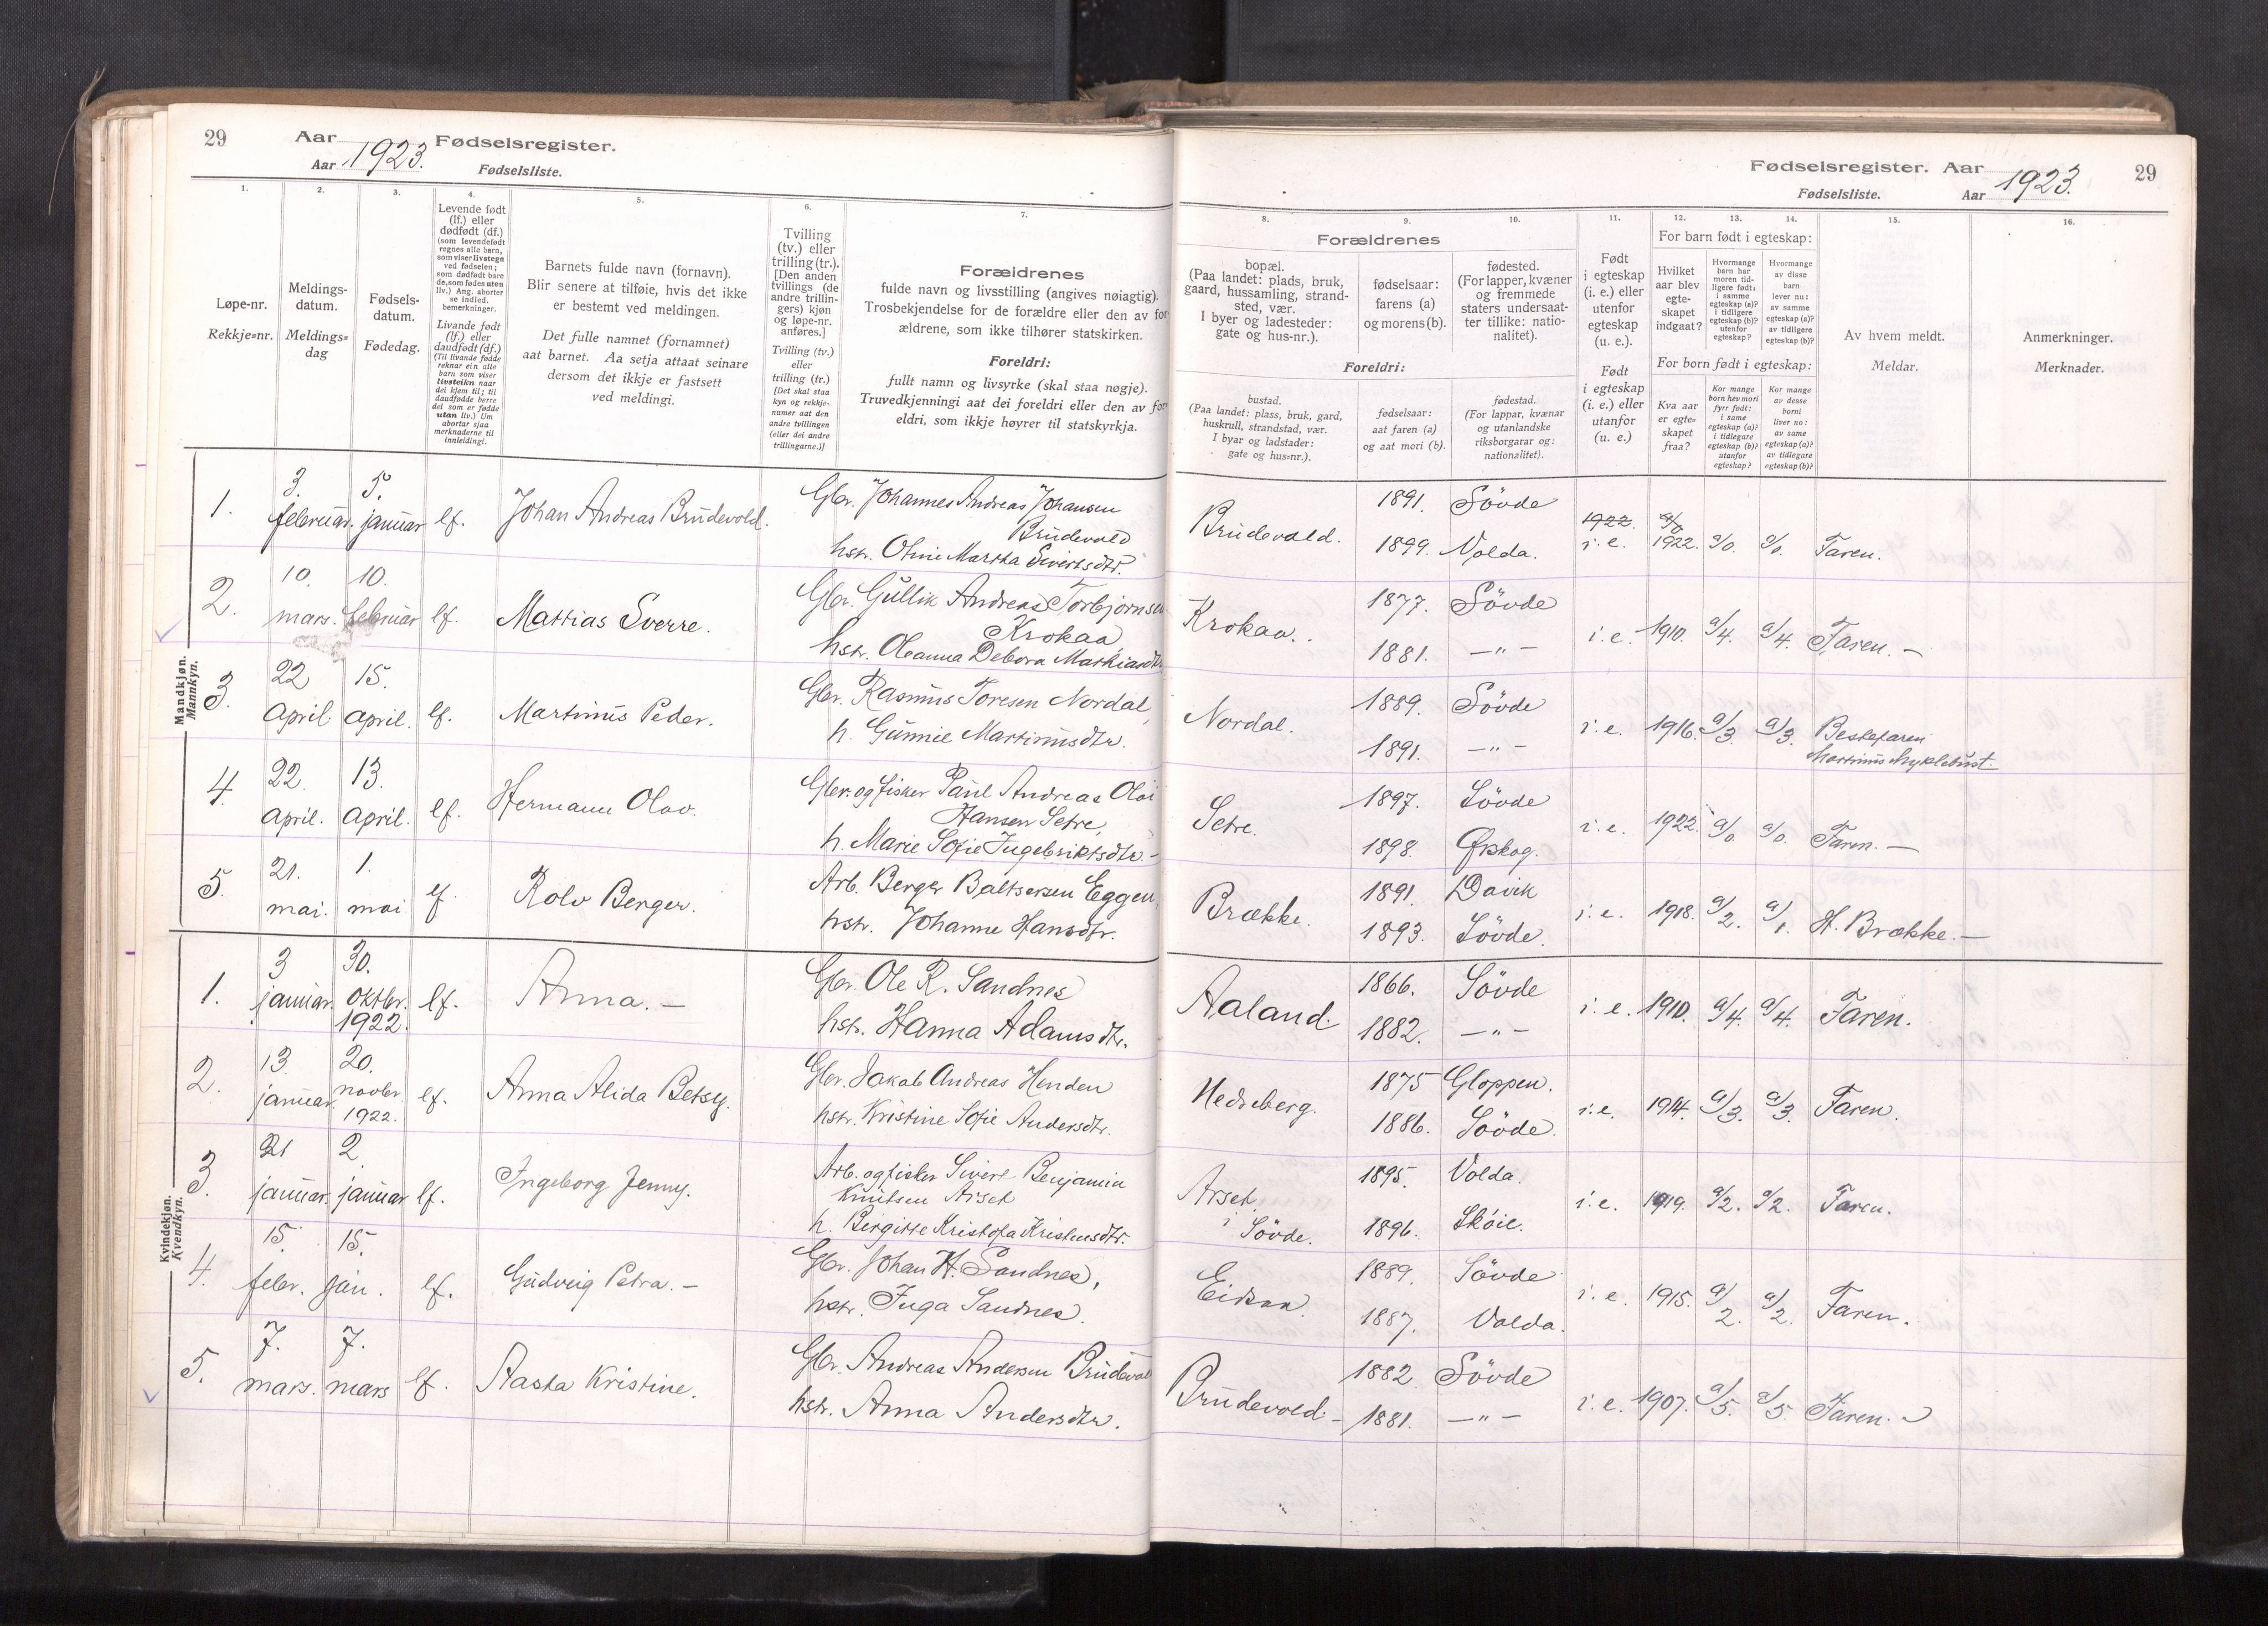 29
Aar
Aar 1923.
Fødselsregister.
Fødselsliste.
1.
Løpe-nr.
Rekkje=nr.
2.
Meldings-
datum.
Meldings=
dag
3.
Fødsels-
datum.
Fødedag.
4.
Levende født
(lf.) eller
dødfødt (df.)
(som levendefødt
regnes alle barn,
som viser livstegn
ved fødselen;
som dødfødt bare
de, som fødes uten
liv.) Ang. aborter
se indled.
bemerkninger.
Livande født
(lf.) eller
daudfødt (df.)
(Til livande fødde
reknar ein alle
barn som viser
livsteikn naar
dei kjem til; til
daudfødde berre
dei som er fødde
utan liv.) Um
abortar sjaa
merknaderne til
innleidingi.
5.
Barnets fulde navn (fornavn).
Blir senere at tilføie, hvis det ikke
er bestemt ved meldingen.
Det fulle namnet (fornamnet)
aat barnet. Aa setja attaat seinare
dersom det ikkje er fastsett
ved meldingi.
6.
Tvilling
(tv.) eller
trilling (tr.).
[Den anden
tvillings (de
andre trillin-
gers) kjøn
og løpe-nr.
anføres.]
Tvilling (tv.)
eller
trilling (tr.)
[Det skal staa
kyn og rekkje-
numer aat den
andre tvillingen
(eller dei andre
trillingarne.)]
7.
Forældrenes
fulde navn og livsstilling (angives nøiagtig).
Trosbekjendelse for de forældre eller den av for-
ældrene, som ikke tilhører statskirken.
Foreldri:
fullt namn og livsyrke (skal staa nøgje).
Truvedkjenningi aat dei foreldri eller den av for-
eldri, som ikkje høyrer til statskyrkja.
Fødselsregister. Aar
Fødselsliste.
Aar 1923.
29
8.
Forældrenes
bopæl.
(Paa landet: plads, bruk,
gaard, hussamling, strand-
sted, vær.
I byer og ladesteder:
gate og hus-nr.).
Foreldri:
bustad.
(Paa landet: plass, bruk, gard,
huskrull, strandstad, vær.
I byar og ladstader:
gate og hus=nr.).
9.
fødselsaar:
farens (a)
og morens (b).
fødselsaar:
aat faren (a)
og aat mori (b).
10.
fødested.
(For lapper, kvæner
og fremmede
staters undersaat-
ter tillike: natio-
nalitet).
fødestad.
(For lappar, kvænar
og utanlandske
riksborgarar og:
nationalitet).
11.
Født
i egteskap
(i. e.) eller
utenfor
egteskap
(u. e.).
Født
i egteskap
(i. e.) eller
utanfor
(u. e.)
For barn født i egteskap:
12.
Hvilket
aar blev
egte-
skapet
indgaat?
13.
Hvormange
barn har
moren tid-
ligere født:
i samme
egteskap (a)?
i tidligere
egteskap (b)?
utenfor
egteskap?
14.
Hvormange
av disse
barn
lever nu:
av samme
egteskap (a)?
av tidligere
egteskap (b)?
For born født i egteskap:
Kva aar
er egte=
skapet
fraa?
Kor mange
born hev mori
fyrr født:
i same
egteskap (a)?
i tidlegare
egteskap (b)?
utanfor
egteskap?
Kor mange
av desse
borni
liver no:
av same
egteskap (a)?
av tidlegare
egteskap (b)?
15.
Av hvem meldt.
Meldar.
16.
Anmerkninger.
Merknader.
Mandkjøn.
Mannkyn.
1. 3. februar. 5. januar lf. Johan Andreas Brudevold. Gbr. Johannes Andreas Johansen
Brudevold
hstr. Oline Martha Sivertsdtr.
Brudevold. 1891. Sövde 1922. i. e. 1922. a/0. a/0. Faren.
1899. Volda.
2. 10. mars. 10. februar lf. Mattias Sverre. Gbr. Gullik Andreas Torbjørnsen
Krokaa,
hstr. Oleanna Debora Mathiasdtr.
Krokaa. 1877. Sövde i. e. 1910. a/4. a/4. Faren. —
1881. —"—
3. 22 April 15. April. lf. Martinus Peder. Gbr. Rasmus Toresen Nordal,
h. Gunnie Martinusdtr.
Nordal. 1889. Sövde i. e. 1916. a/3. a/3. Bestefaren
Martinus Myklebust.
1891. —"—
4. 22. April. 13. April. lf. Hermann Olav. Gbr. og fisker Paul Andreas Olai
Hansen Setre,
h. Marie Sofie Ingebriktsdtr. —
Setre. 1897. Sövde i. e. 1922. a/0. a/0. Faren. —
1898. Ørskog.
5. 21. mai. 1. mai lf Rolv Berger. Arb. Berger Baltsersen Eggen,
hstr. Johanne Hansdtr.
Brække. 1891. Davik i. e. 1918. a/2. a/1. H. Brække. —
1893. Sövde.
Kvindekjøn.
Kvendkyn.
1. 3 januar. 30. oktbr. 1922. lf. Anna. — Gbr. Ole R. Sandnes
hstr. Hanna Adamsdtr.
Aaland. 1866. Sövde i. e. 1910. a/4. a/4. Faren.
1882. —"—
2. 13. januar. 20. novbr 1922. lf. Anna Alida Betsy. Gbr. Jakob Andreas Henden
hstr. Kristine Sofie Andersdtr.
Hedseberg. 1875 Gloppen. i. e. 1914. a/3. a/3. Faren.
1886. Sövde.
3. 21 januar. 2 januar lf. Ingeborg Jenny. Arb. og fisker Sivert Benjamin
Knutsen Årset
h. Bergitte Kristofa Kristensdtr.
Årset 1895. Volda. i. e. 1919. a/2. a/2. Faren.
i Sövde. 1896. Sköie.
4. 15. febr. 15. jan. lf. Gudveig Petra. — Gbr. Johan H. Sandnes,
hstr. Inga Sandnes.
Eidsaa. 1889. Sövde i. e. 1915. a/2. a/2. Faren.
1887. Volda.
5. 7. mars. 7. mars lf. Aasta Kristine. Gbr. Andreas Andersen Brudevold
hstr. Anna Andersdtr.
Brudevold. — 1882 Sövde i. e. 1907. a/5. a/5. Faren.
1881. —"—